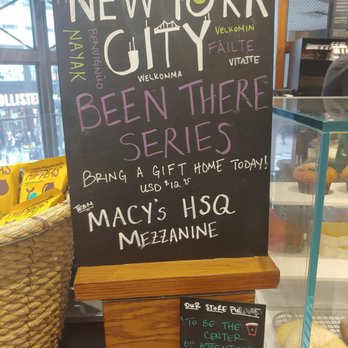 NEW YORK
CITY
NAYAK
BENVENUTO
VELKOMIN
FÁILTE
VITAJTE
WELKONMA
BEEN THERE
SERIES
BRING A GIFT HOME TODAY!
USD $12.95
TEAM
MACY'S HSQ
MEZZANINE
HOLLISTER
HIPPEAS
OUR STORE
"TO BE THE
CENTER
OF